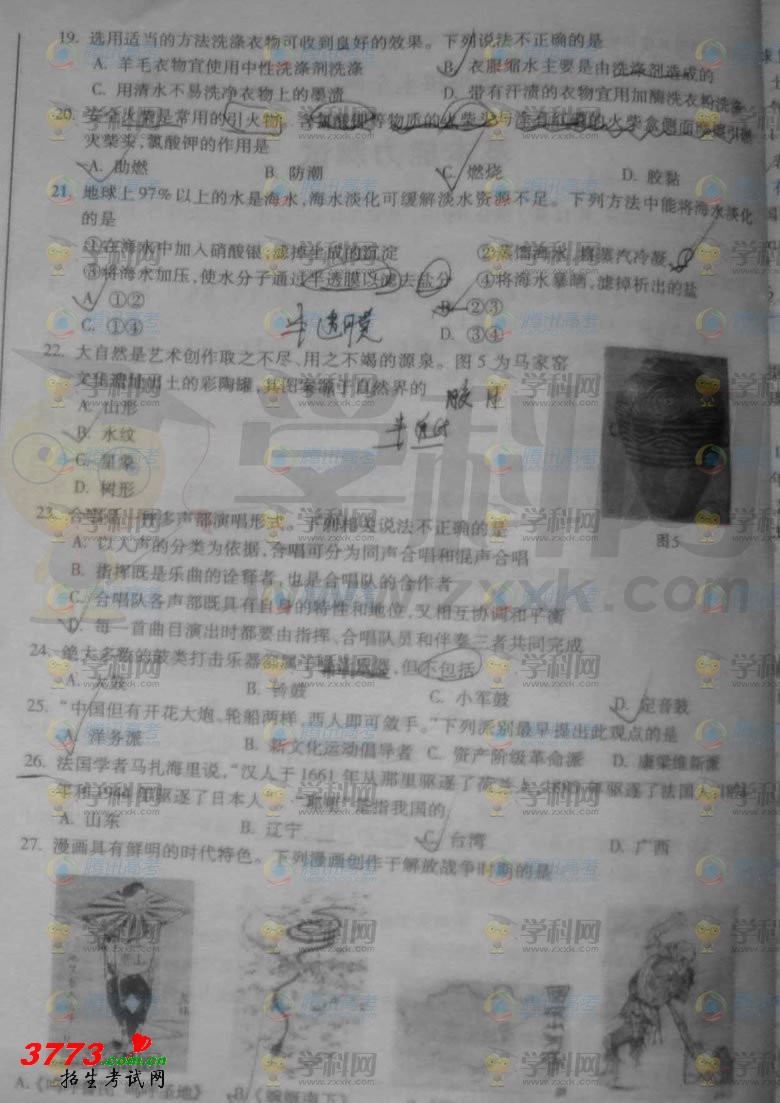 19. 选用适当的方法洗涤衣物可收到良好的效果。下列说法不正确的是
A. 羊毛衣物宜使用中性洗涤剂洗涤 B. 衣服缩水主要是由洗涤剂造成的
C. 用清水不易洗净衣物上的墨渍 D. 带有汗渍的衣物宜用加酶洗衣粉洗涤
20. 安全火柴是常用的引火物。含氯酸钾等物质的火柴头与涂有红磷的火柴盒侧面
火柴头,氯酸钾的作用是
A. 助燃 B. 防潮 C. 燃烧 D. 胶黏
21. 地球上97%以上的水是海水,海水淡化可缓解淡水资源不足。下列方法中能将海水淡化
的是
①在海水中加入硝酸银,滤掉生成的沉淀 ②蒸馏海水,将蒸汽冷凝
③将海水加压,使水分子通过半透膜以滤去盐分 ④将海水暴晒,滤掉析出的盐
A. ①② B. ②③
C. ①④ D. ③④
半透膜
22. 大自然是艺术创作取之不尽、用之不竭的源泉。图5为马家窑
文化遗址出土的彩陶罐,其图案源于自然界的
A. 山形
B. 水纹
C. 星象
D. 树形
图5
23. 合唱是一种多声部演唱形式。下列相关说法不正确的是
A. 以人声的分类为依据,合唱可分为同声合唱和混声合唱
B. 指挥既是乐曲的诠释者,也是合唱队的合作者
C. 合唱队各声部既具有自身的特性和地位,又相互协调和平衡
D. 每一首曲目演出时都要由指挥、合唱队员和伴奏三者共同完成
24. 绝大多数的鼓类打击乐器都属于噪音乐器,但不包括
A. 大鼓 B. 铃鼓 C. 小军鼓 D. 定音鼓
25. “中国但有开花大炮、轮船两样,西人即可敛手。”下列派别最早提出此观点的是
A. 洋务派 B. 新文化运动倡导者 C. 资产阶级革命派 D. 康梁维新派
26. 法国学者马扎海里说,“汉人于1661年从那里驱逐了荷兰人,1885年驱逐了法国人
驱逐了日本人”。“那里”是指我国的
A. 山东 B. 辽宁 C. 台湾 D. 广西
27. 漫画具有鲜明的时代特色。下列漫画创作于解放战争时期的是
3773.com.cn
招生考试网
学科网
www.zxxk.com
腾讯高考